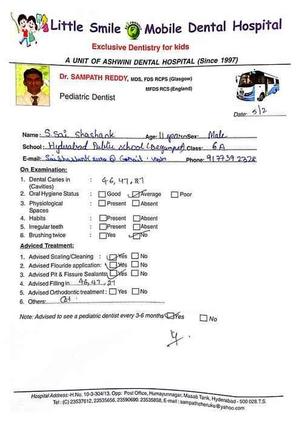 Little Smile Mobile Dental Hospital
Exclusive Dentistry for kids
A UNIT OF ASHWINI DENTAL HOSPITAL (Since 1997)
Dr. SAMPATH REDDY, MDS, FDS RCPS (Glasgow)
MFDS RCS (England)
Pediatric Dentist
Date: 5/2
Name: S. Sai Shashank Age: 11 years Sex: Male
School: Hyderabad Public School (Begumpet) Class: 6A
E-mail: Phone:
On Examination:
1. Dental Caries in (Cavities) 46, 47, 37
2. Oral Hygiene Status : Good Average Poor
3. Physiological Spaces : Present Absent
4. Habits : Present Absent
5. Irregular teeth : Present Absent
6. Brushing twice : Yes No
Adviced Treatment:
1. Advised Scaling/Cleaning : Yes No
2. Advised Flouride application: Yes No
3. Advised Pit & Fissure Sealants: Yes No
4. Advised Filling in 46, 47, 37
5. Advised Orthodontic treatment : Yes No
6. Others:
Note: Advised to see a pediatric dentist every 3-6 months Yes No
Hospital Address: H.No. 10-3-304/13, Opp: Post Office, Humayunnagar, Masab Tank, Hyderabad - 500 028 T.S.
Tel: (C) 23537612, 23535656, 23590690, 23535858, E-mail : sampathcheruku@yahoo.com